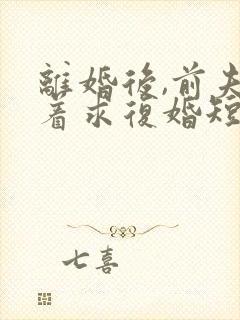 離婚後,前夫
着求復婚短
七喜